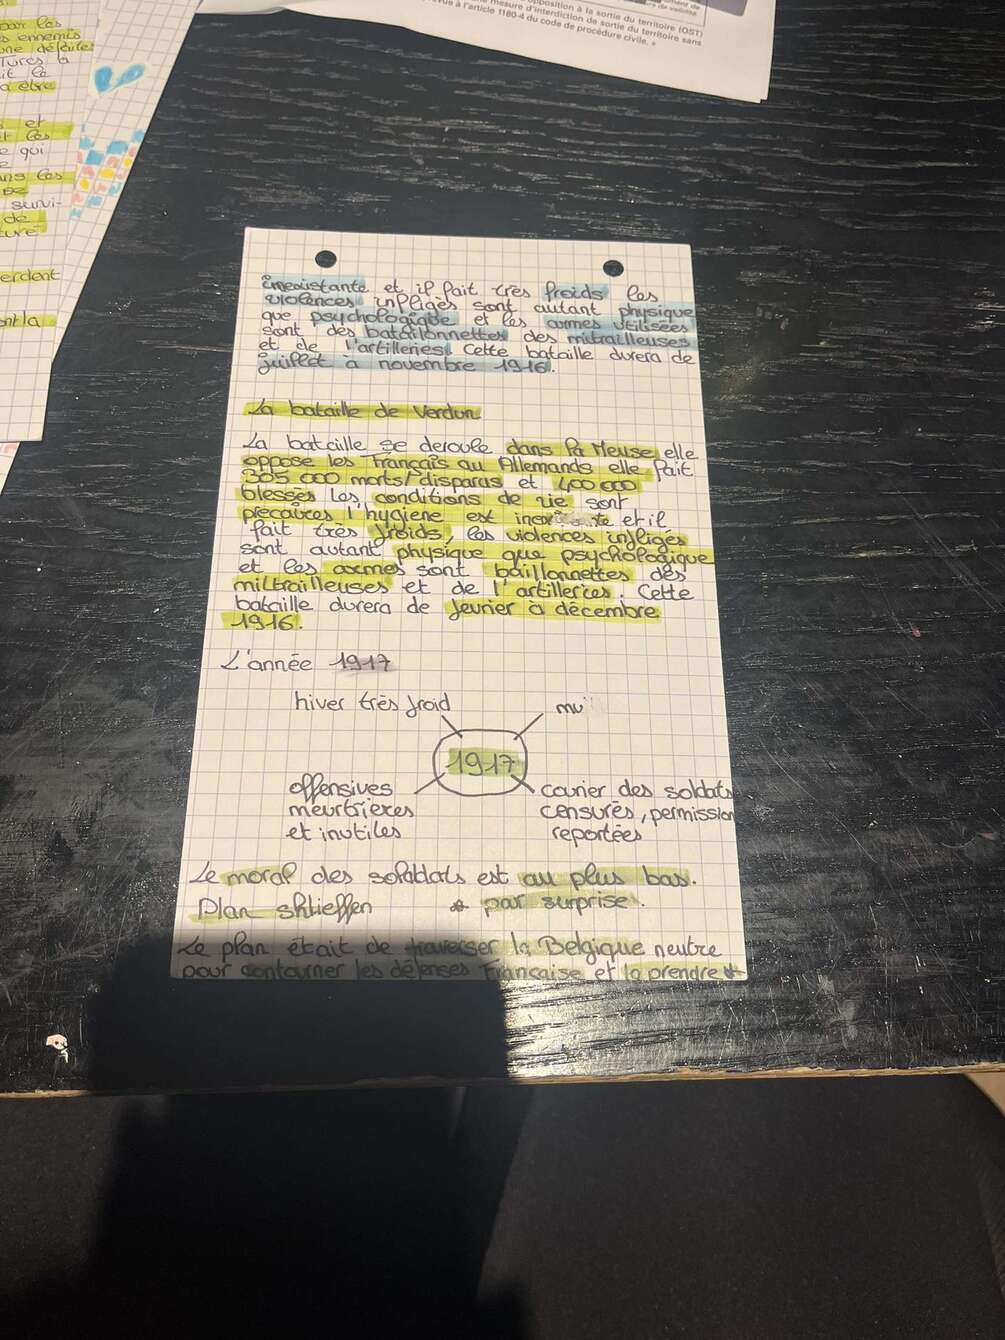 opposition à la sortie du territoire (OST)
mesure d'interdiction de sortie du territoire sans
vue à l'article 1180-4 du code de procédure civile. »
par les
s ennemis
une défaites
tures à
it le
a être
et
t les
e qui
ans les
survi-
de
ture
erdent
ont la
inexistante et il fait très froids les
violences infligés sont autant physique
que psychologiqbe et les armes utilisées
sont des bataillonnettes des mitrailleuses
et de l'artilleries. Cette bataille durera de
juillet à novembre 1916.
La bataille de Verdun
La bataille se deroule dans la Meuse, elle
oppose les Français au Allemands elle fait
305 000 morts/disparus et 400 000
blessés les conditions de vie sont
précaires l'hygiene est et il
fait très froids, les violences infligés
sont autant physique que psychologique
et les armes sont baillonnettes des
miltrailleuses et de l'artilleries. Cette
bataille durera de fevrier à décembre
1916.
L'année 1917
hiver très froid
1917
offensives
meurtrieres
et inutiles
courier des soldats
censurés, permission
reportées
Le moral des soldats est au plus bas.
Plan shlieffen * par surprise.
Le plan était de traverser la Belgique neutre
pour contourner les défenses Française et la prendre *